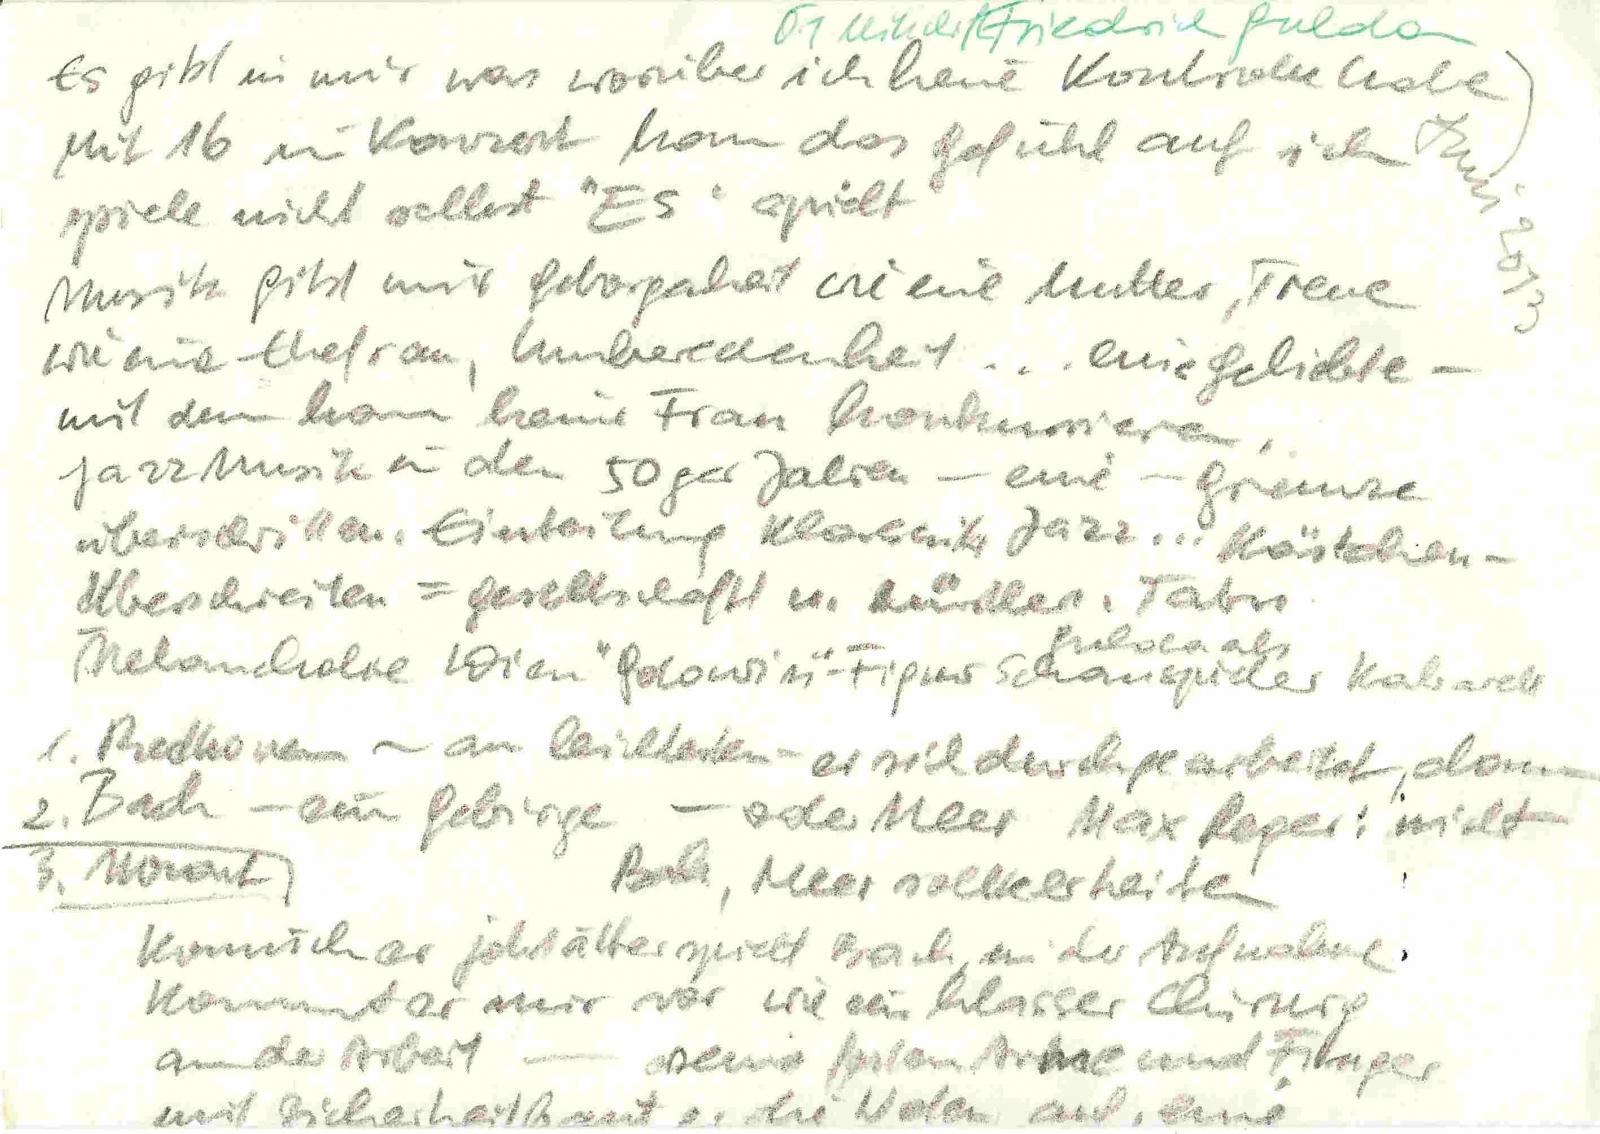 Ö1 Friedrich Gulda
Es gibt in mir was worüber ich keine Kontrolle habe
Juni 2013
Mit 16 im Konzert kam das Gefühl auf ich
spiele nicht selbst "ES" spielt
Musik gibt mir Geborgenheit wie eine Mutter, Treue
wie eine Ehefrau, ... eine Geliebte –
mit dem kann keine Frau konkurrieren.
Jazz Musik in den 50ger Jahren – eine – Grenze
überschritten. Einteilung Klassik Jazz... Kästchen –
Überschreiten = gesellschaftl u. Tabu
Gulda als
Melancholie Wien "Golowin"-Figur Schauspieler Kabarett
1. Beethoven ~ am leichtesten – er sich durchgearbeitet, dann
2. Bach – ein Gebirge – oder Meer Max Reger: nicht
3. Mozart Bach, Meer sollte er heißen
Komisch er jetzt älter spielt Bach in der Aufnahme.
Kommt er mir vor wie ein blasser Chirurg
an der Arbeit — seine Arme und Finger
mit Sicherheit er die Noten auf, eine